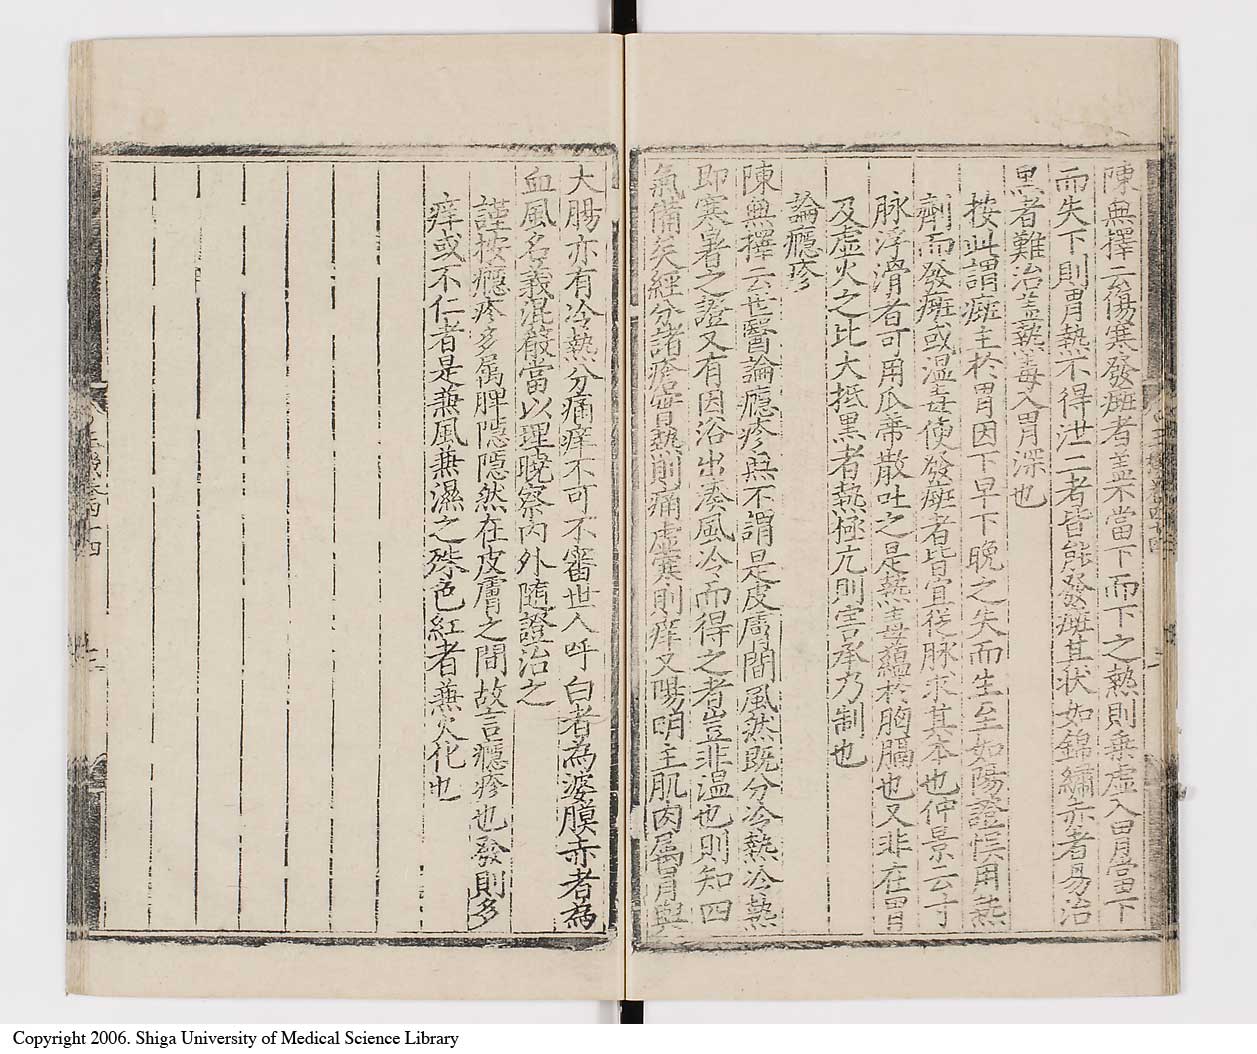 陳無擇云傷寒發癍者盖不當下而下之熱則乗虚入胃當下
而失下則胃熱不得泄二者皆能發癍其状如錦繡赤者易治
黒者難治盖熱毒入胃深也
按此謂癍主於胃因下早下晚之失而生至如陽證悮用熱
劑而發癍或温毒使發癍者皆宜從脉求其本也仲景云寸
脉浮滑者可用瓜蒂散吐之是熱毒蘊於胸膈也又非在胃
及虚火之比大抵黒者熱極亢則害承乃制也
論癮疹
陳無擇云世醫論癮疹無不謂是皮膚間風然既分冷熱冷熱
即寒暑之證又有因浴出湊風冷而得之者豈非温也則知四
氣備矣經分諸瘡實熱則痛虚寒則痒又陽明主肌肉属胃與
大腸亦有冷熱分痛痒不可不審世人呼白者為婆膜赤者為
血風名義混殽當以理曉察内外随證治之
謹按癮疹多属脾隱隱然在皮膚之間故言癮疹也發則多
痒或不仁者是兼風兼濕之殊色紅者兼火化也
Copyright 2006. Shiga University of Medical Science Library